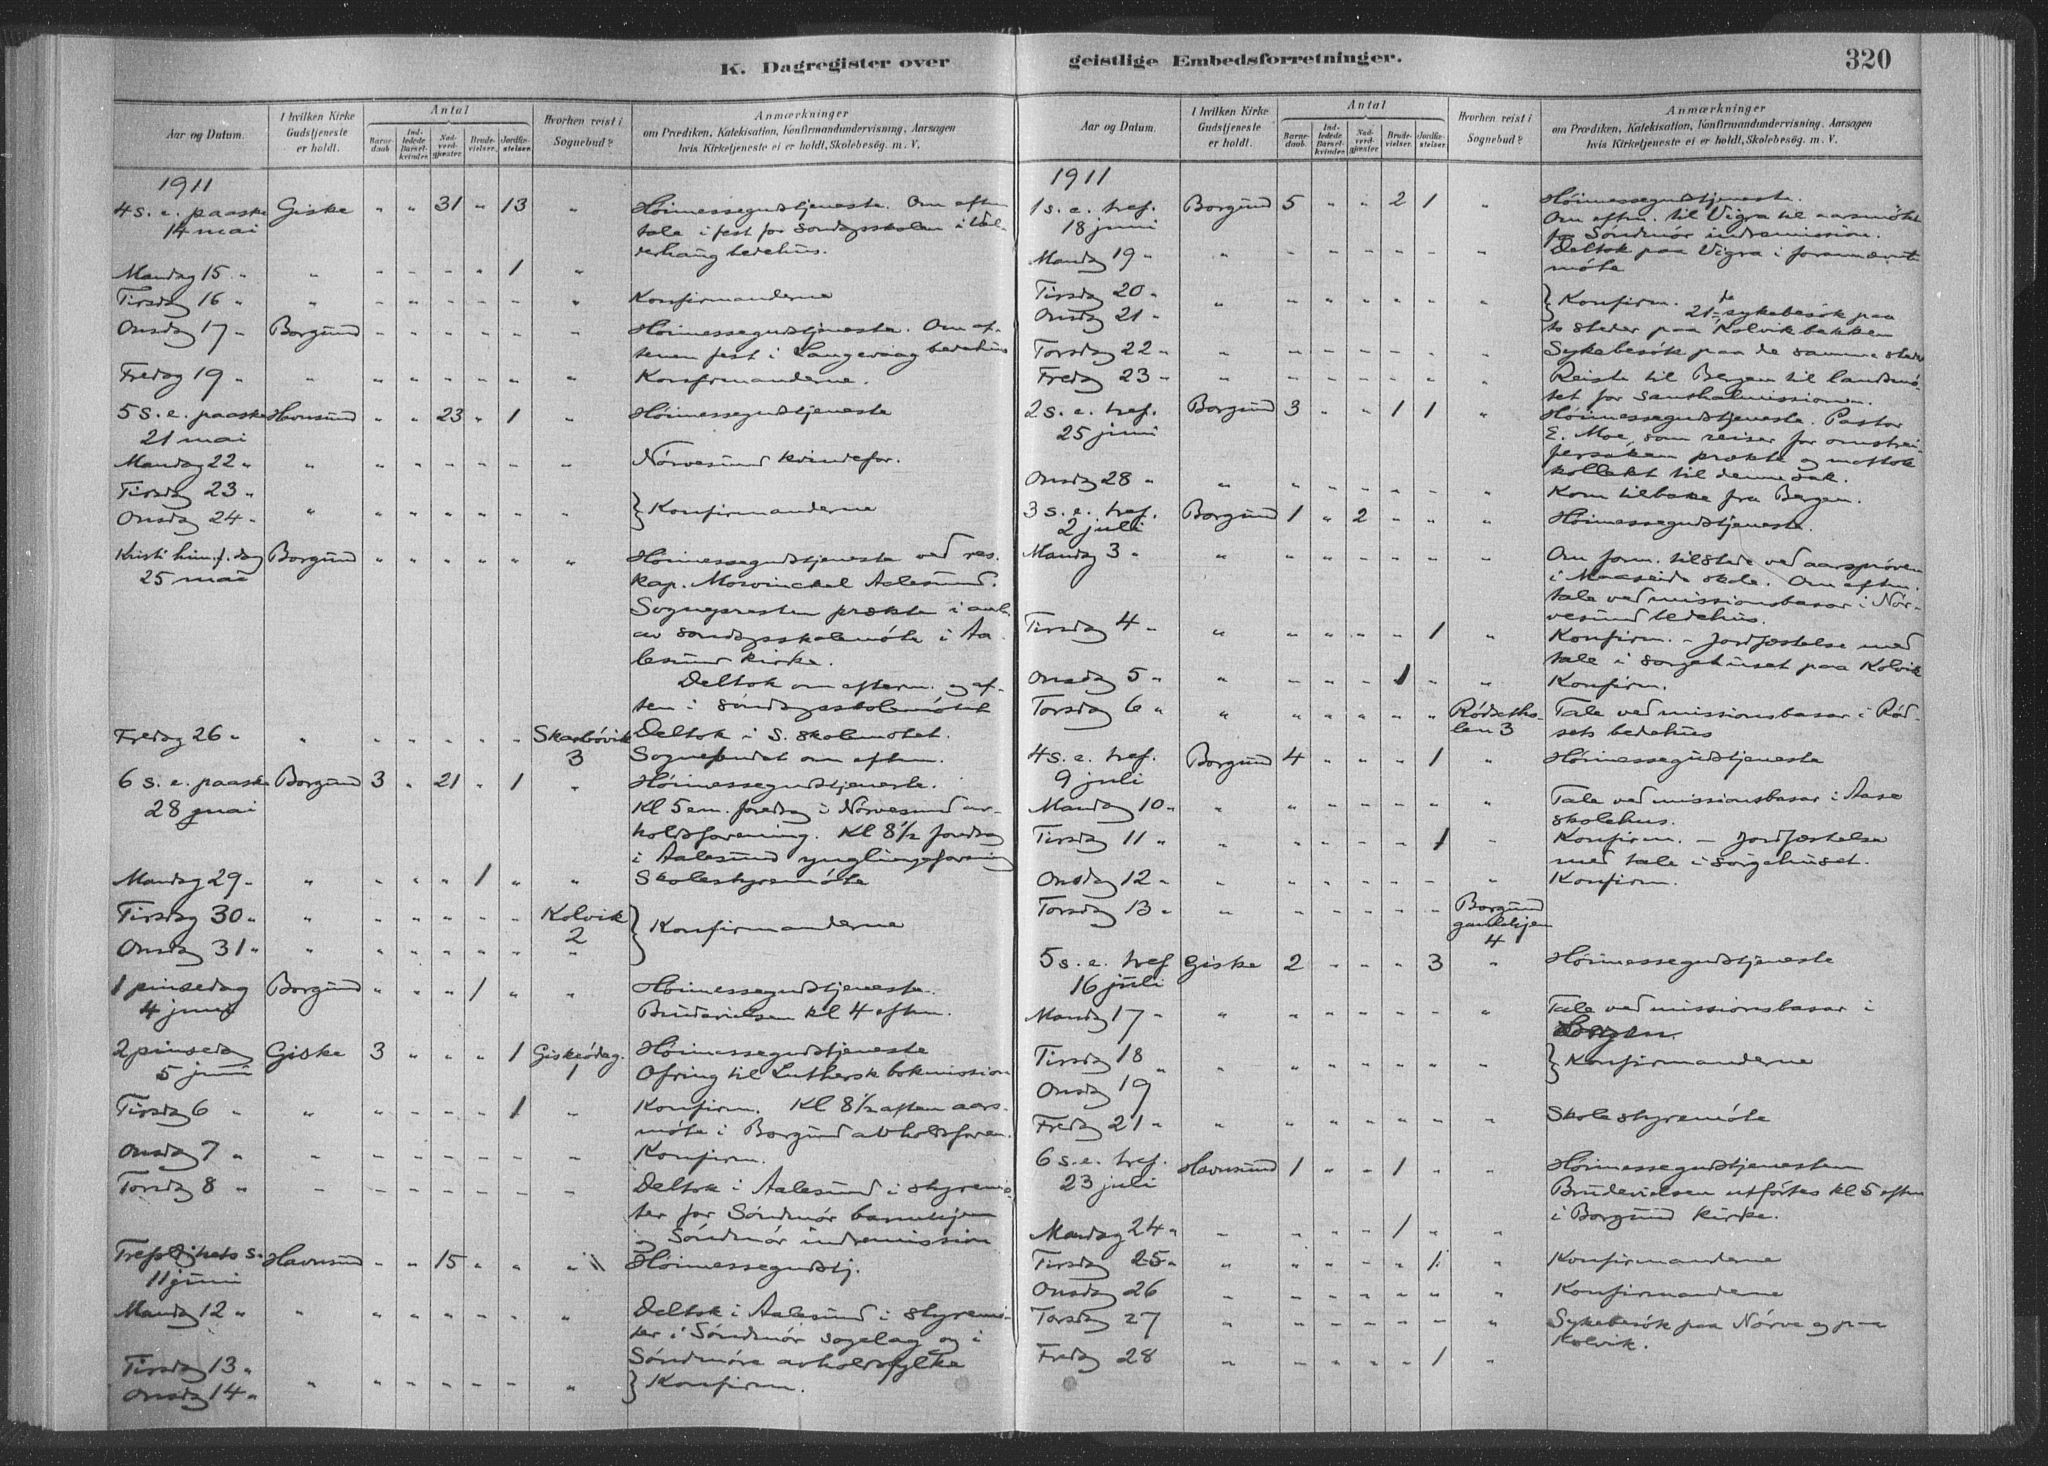 K. Dagregister over
Aar og Datum.
I hvilken Kirke Gudstjeneste er holdt.
Antal
Barnedaab.
Indledede Barselkvinder.
Nadverdgjæster.
Brudevielser.
Jordfæstelser.
Hvorhen reist i Sognebud?
Anmærkninger
om Prædiken, Katekisation, Konfirmandundervisning, Aarsagen
hvis Kirketjeneste ei er holdt, Skolebesøg. m. V.
1911
4 s. e. paaske Giske " " 31 " 13 " Høimessegudstjeneste. Om eften
14 mai tale i fest for søndagsskolen i Val-
derhaug bedehus.
Mandag 15 " " " " " " 1 "
Tirsdag 16 " " " " " " " " Konfirmanderne
Onsdag 17 " Borgund " " " " " " Høimessegudstjeneste. Om af-
tenen fest i Langevaag bedehus
Fredag 19 " " " " " " " " Konfirmanderne.
5 s. e. paaske Havnsund " " 23 " 1 " Høimessegudstjeneste
21 mai
Mandag 22 " " " " " " " " Nørvesund kvindefor.
Tirsdag 23 "
Onsdag 24 " " " " " " " " } Konfirmanderne
Kristi him. f. dag Borgund " " " " " " Høimessegudstjeneste ved res.
25 mai kap. Mowinckel Aalesund.
Sognepresten prækte i anl.
av søndagsskolemøte i Aa-
lesund kirke.
Deltok om efterm. og af-
ten i søndagsskolemøtet
Fredag 26 " " " " " " " Skarbøvik Deltok i S. skolmøtet.
3 Sognebudet om eften.
6 s. e. paaske Borgund 3 " 21 " 1 " Høimessegudstjeneste.
28 mai Kl 5 em. foredrag i Nørvesund av-
holdsforening. Kl 8½ foredrag
i Aalesund ynglingeforening
Mandag 29 " " " " " 1 " " Skolestyremøte
Tirsdag 30 " " " " " " " Kolvik
2 } Konfirmanderne
Onsdag 31 " " " " " " " "
1 pinsedag Borgund " " " 1 " " Høimessegudstjeneste.
4 juni Brudevielsen kl 4 eften.
2 pinsedag Giske 3 " " " 1 Giskeødeg. Høimessegudstjeneste
5 juni 1 Ofring til Luthersk bokmission
Tirsdag 6 " " " " " " 1 " Konfirm. Kl 8½ aften aars-
møte i Borgund avholdsforen.
Onsdag 7 " " " " " " " " Konfirm.
Torsdag 8 " " " " " " " " Deltok i Aalesund i styremø-
ter for Søndmør barnehjem
og Søndmør indremission
Trefoldighets s. Havnsund " " 15 " " " Høimessegudstj.
11 juni
Mandag 12 " " " " " " " " Deltok i Aalesund i styremø-
ter i Søndmør sogelag og i
Søndmøre avholdsfylke
Tirsdag 13 "
Onsdag 14 " " " " " " " " } Konfirm.
geistlige Embedsforretninger.
320
Aar og Datum.
I hvilken Kirke Gudstjeneste er holdt.
Antal
Barnedaab.
Indledede Barselkvinder.
Nadverdgjæster.
Brudevielser.
Jordfæstelser.
Hvorhen reist i Sognebud?
Anmærkninger
om Prædiken, Katekisation, Konfirmandundervisning, Aarsagen
hvis Kirketjeneste ei er holdt, Skolebesøg. m. V.
1911
1 s. e. tref. Borgund 5 " " 2 1 " Høimessegudstjeneste.
18 juni Om eftn. til Vigra til aarsmøte
for Søndmør indremission.
Mandag 19 " " " " " " " " Deltok paa Vigra i forannævnte
møte
Tirsdag 20 "
Onsdag 21 " " " " " " " " } Konfirm. 21de sykebesøk paa
to steder paa Kolvikbakken
Torsdag 22 " " " " " " " " Sykebesøk paa de samme steder
Fredag 23 " " " " " " " " Reiste til Bergen til landsmø-
tet for santhalmissionen.
2 s. e. tref. Borgund 3 " " 1 1 " Høimessegudstjeneste. Pastor
25 juni E. Moe, som reiser for omstrei-
fersaken prækte og mottok
kollekt til denne sak.
Onsdag 28 " " " " " " " " Kom tilbake fra Bergen.
3 s. e. tref. Borgund 1 " 2 " " " Høimessegudstjeneste.
2 juli
Mandag 3 " " " " " " " " Om form. tilstede ved aarsprøven
i Maaseide skole. Om eften.
tale ved missionsbasar i Nør-
vesund bedehus.
Tirsdag 4 " " " " " " 1 " Konfirm. – Jordfæstelse med
tale i sørgehuset paa Kolvik
Onsdag 5 " " " " " 1 " " Konfirm.
Torsdag 6 " " " " " " " Rødseths- Tale ved missionsbasar i Rød-
len 3 sets bedehus
4 s. e. tref. Borgund 4 " " " 1 " Høimessegudstjeneste
9 juli
Mandag 10 " " " " " " " " Tale ved missionsbasar i Aase
skolehus.
Tirsdag 11 " " " " " " 1 " Konfirm. – Jordfæstelse
med tale i sørgehuset.
Onsdag 12 " " " " " " " " Konfirm.
Torsdag 13 " " " " " " " Borgund
gamlehjem
4
5 s. e. tref Giske 2 " " " 3 " Høimessegudstjeneste
16 juli
Mandag 17 " " " " " " " " Tale ved missionsbasar i
Tirsdag 18 " " " " " " " " } Konfirmanderne
Onsdag 19
Fredag 21 " " " " " " " " Skolestyremøte
6 s. e. tref. Havnsund 1 " " 1 " " Høimessegudstjenesten
23 juli Brudevielsen utførtes kl 5 eften
i Borgund kirke.
Mandag 24 " " " " " 1 " "
Tirsdag 25 " " " " " " 1 " Konfirmanderne
Onsdag 26 " " " " " " " Konfirmanderne
Torsdag 27 " " " " " " " Sykebesøk paa Nørve og paa
Kolvik.
Fredag 28 " " " " " 1 "